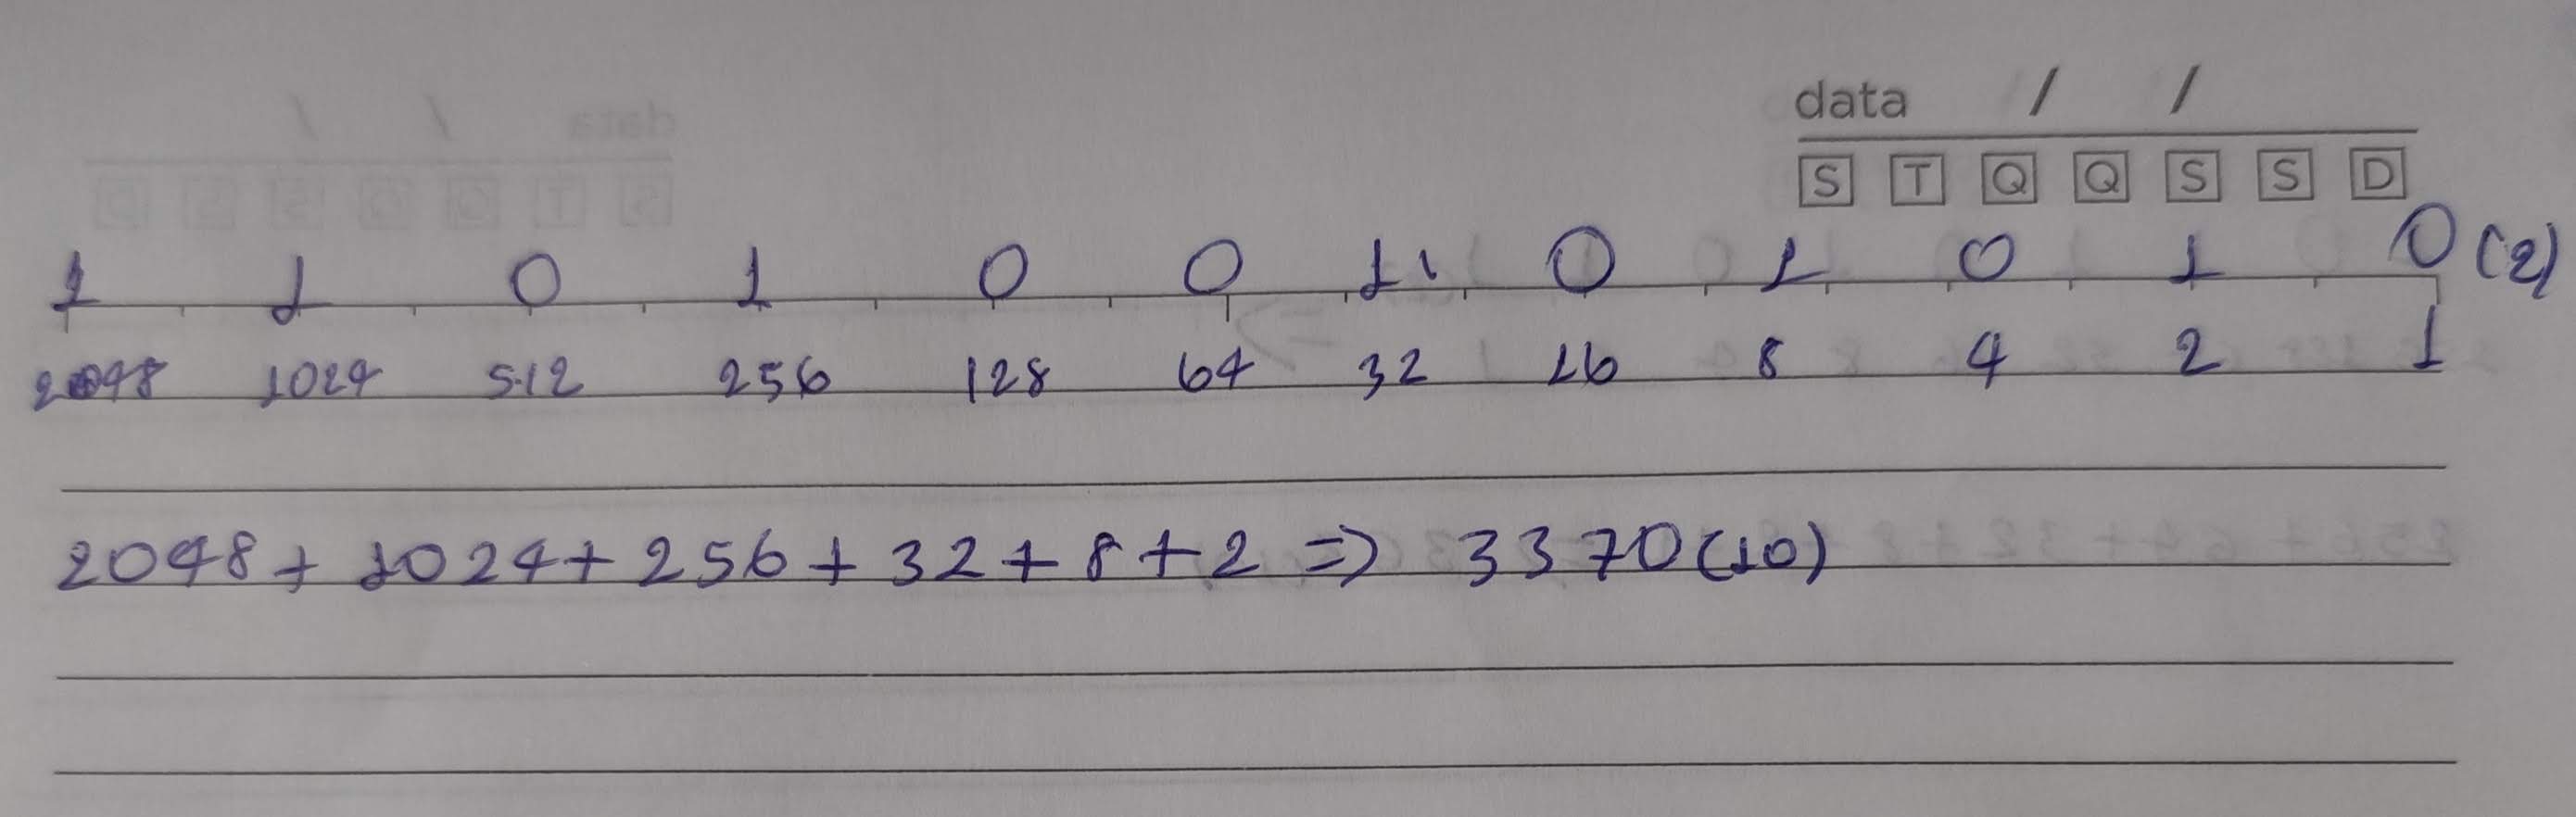 data / /
S T Q Q S S D
1 1 0 1 0 0 1 0 1 0 1 0 (2)
2048 1024 512 256 128 64 32 16 8 4 2 1
2048 + 1024 + 256 + 32 + 8 + 2 => 3370 (10)